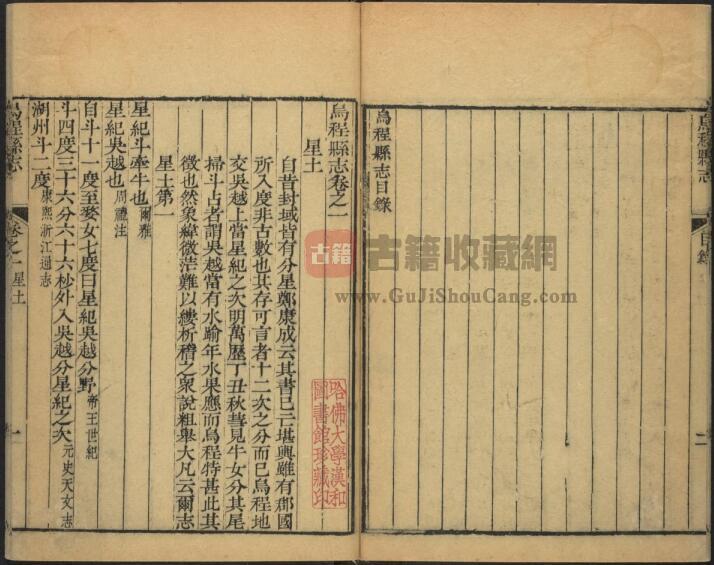 烏程縣志
目錄
二
烏程縣志目錄
烏程縣志卷之一
星土
自昔封域皆有分星鄭康成云其書已亡堪輿雖有郡國
所入度非古數也其存可言者十二次之分而已烏程地
交吳越上當星紀之次明萬歷丁丑秋彗見牛女分其尾
掃斗占者謂吳越當有水踰年水果應而烏程特甚此其
徵也然象緯微茫難以縷析稽之衆說粗舉大凡云爾志
星土第一
星紀斗牽牛也爾雅
星紀吳越也周禮注
自斗十一度至婺女七度曰星紀吳越分野帝王世紀
斗四度三十六分六十六秒外入吳越分星紀之次元史天文志
湖州斗二度康熙浙江通志
烏程縣志
卷之一 星土
一
哈佛大學漢和
圖書館珍藏印
古籍
古籍收藏網
www.GuJiShouCang.com